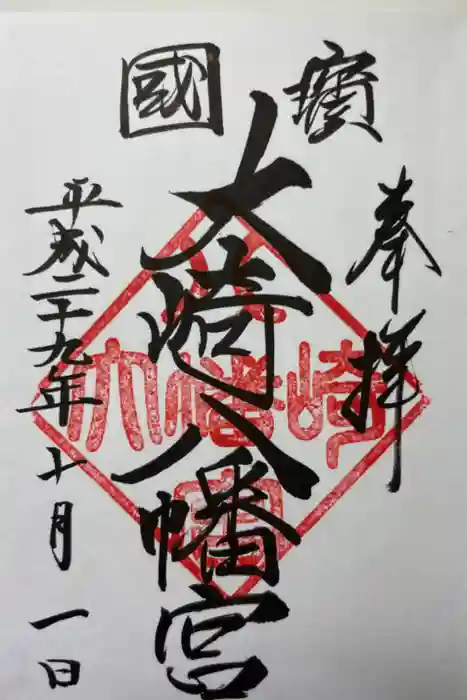 國寶
奉拝
大崎八幡宮
平成二十九年十月一日